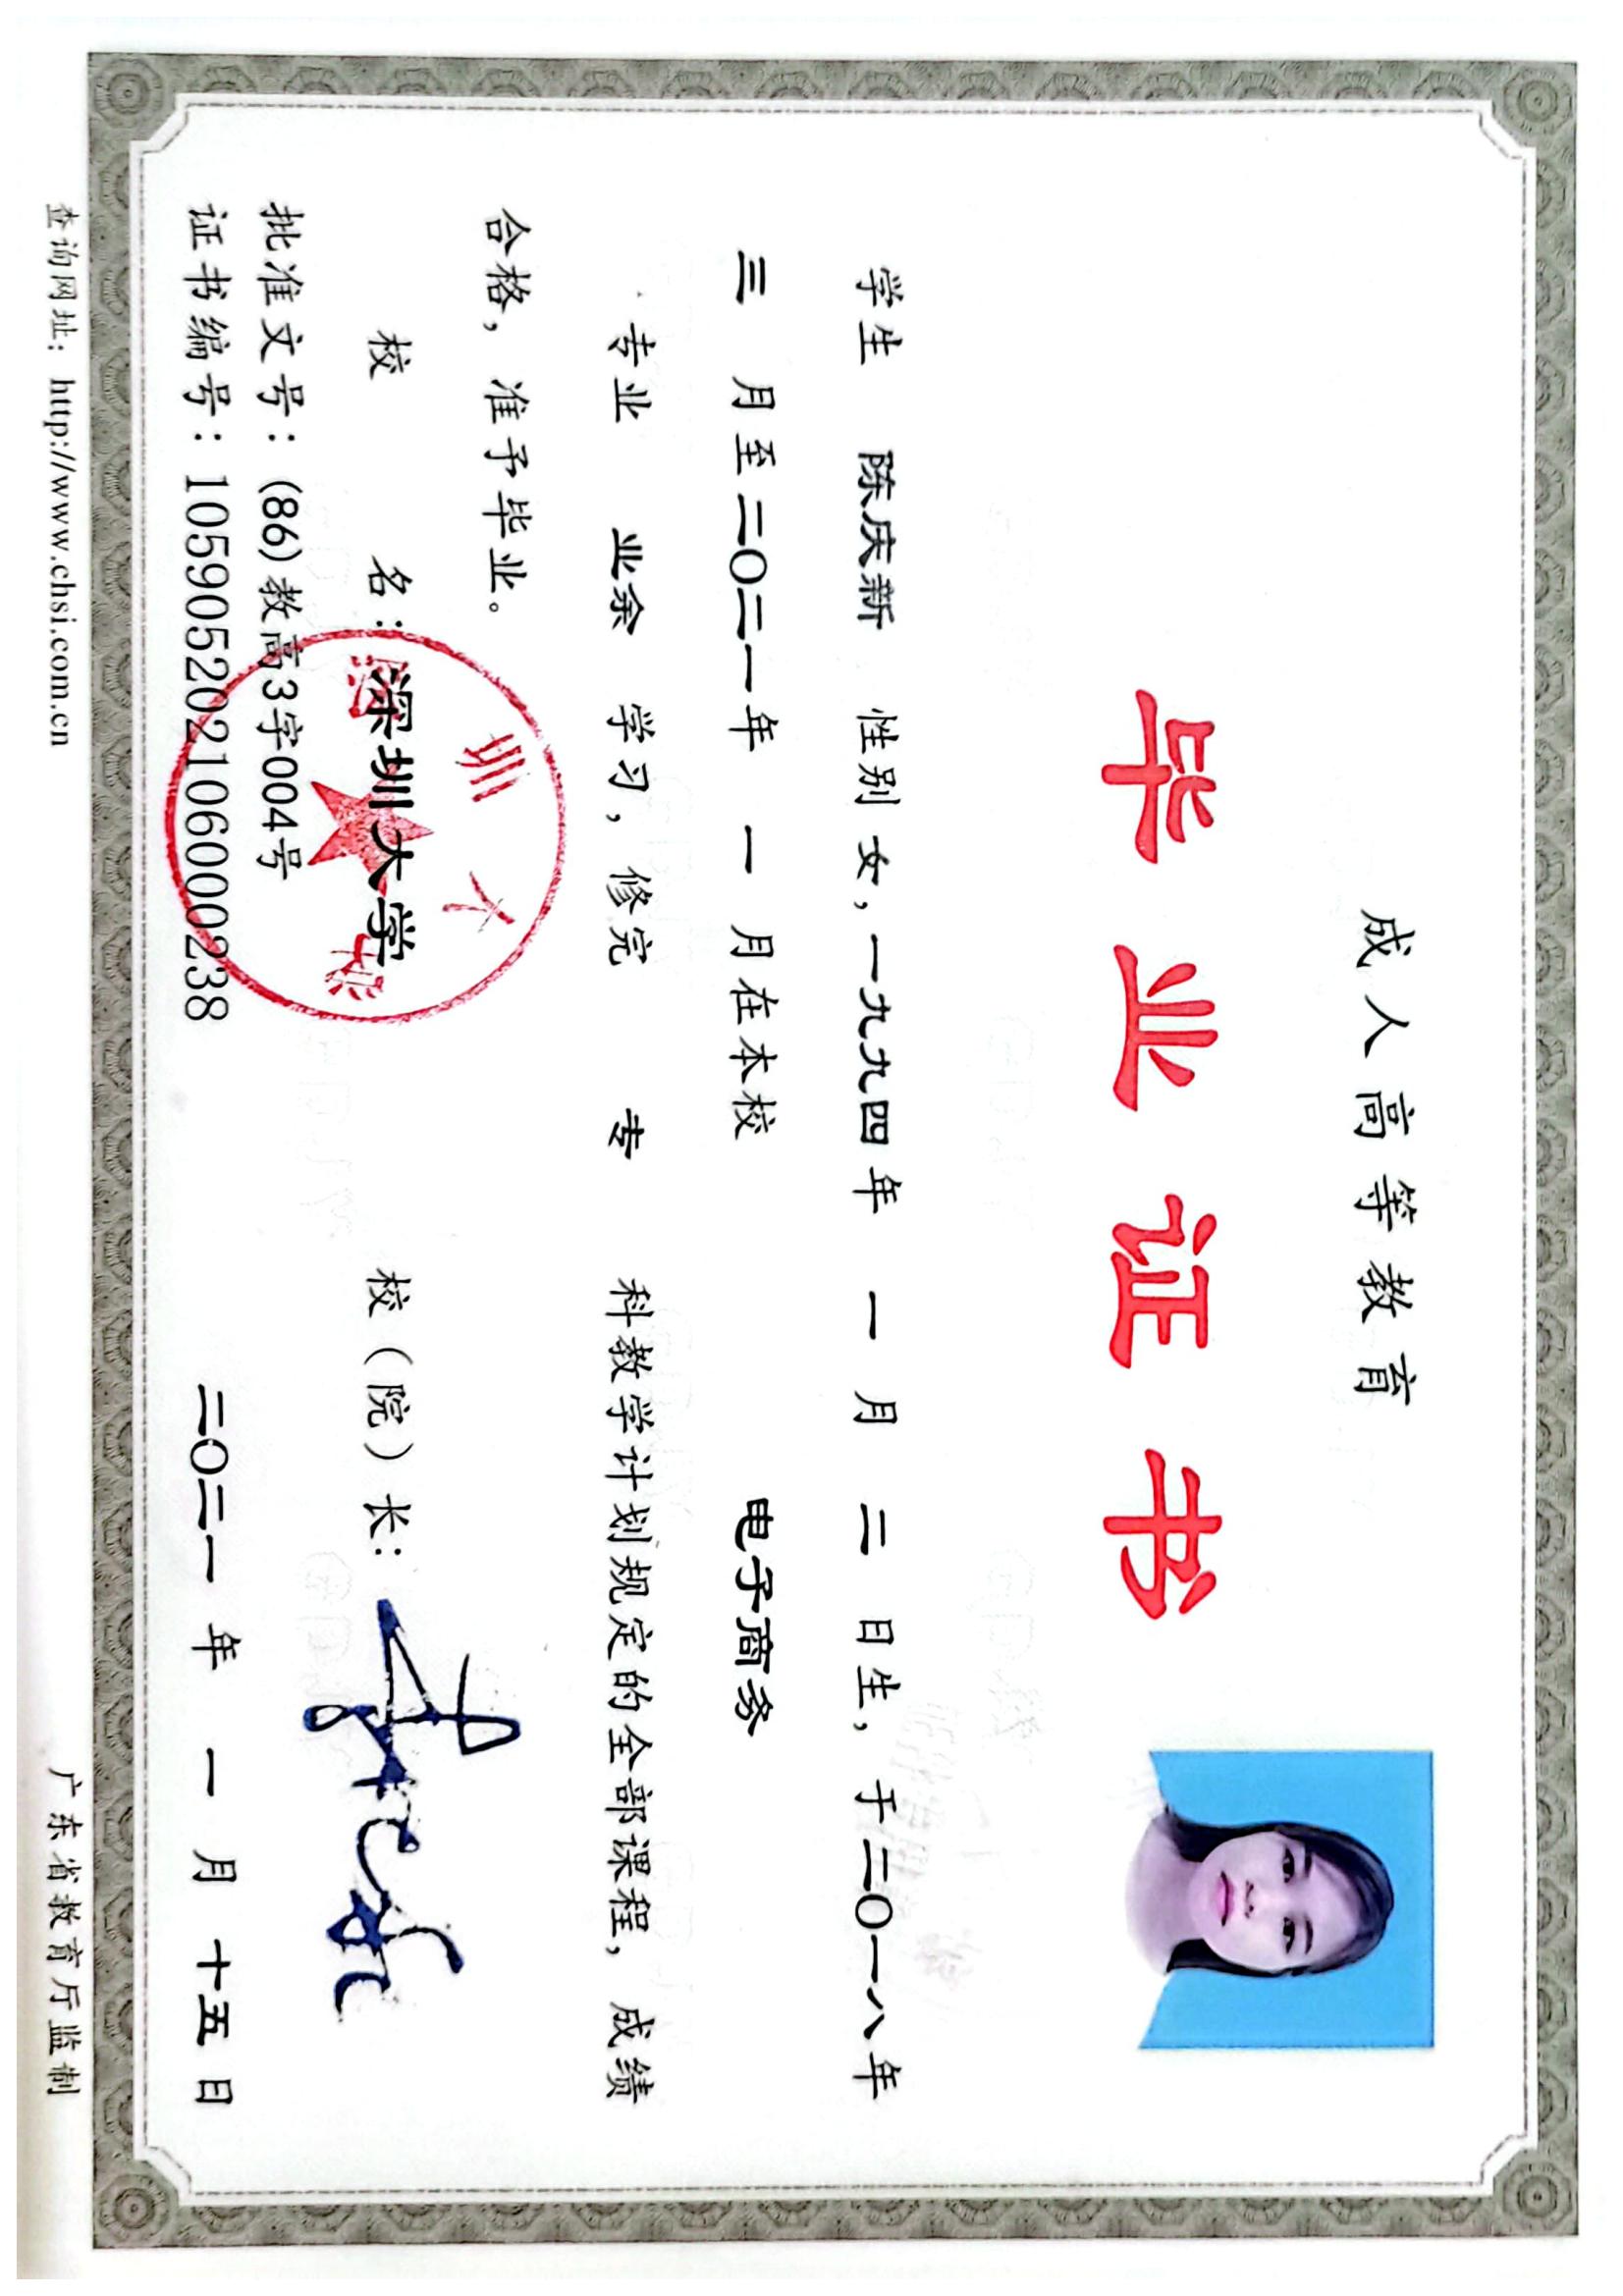 成人高等教育
毕业证书
学生 陈庆新 性别 女，一九九四年 一 月 二 日生，于二〇一八年
三 月至二〇二一年 一 月在本校 电子商务
专业 业余 学习，修完 专 科教学计划规定的全部课程，成绩
合格，准予毕业。
校 名：深圳大学 校（院）长：
批准文号：(86)教高3字004号
证书编号：105905202106000238 二〇二一年 一 月 十五 日
查询网址：http://www.chsi.com.cn 广东省教育厅监制